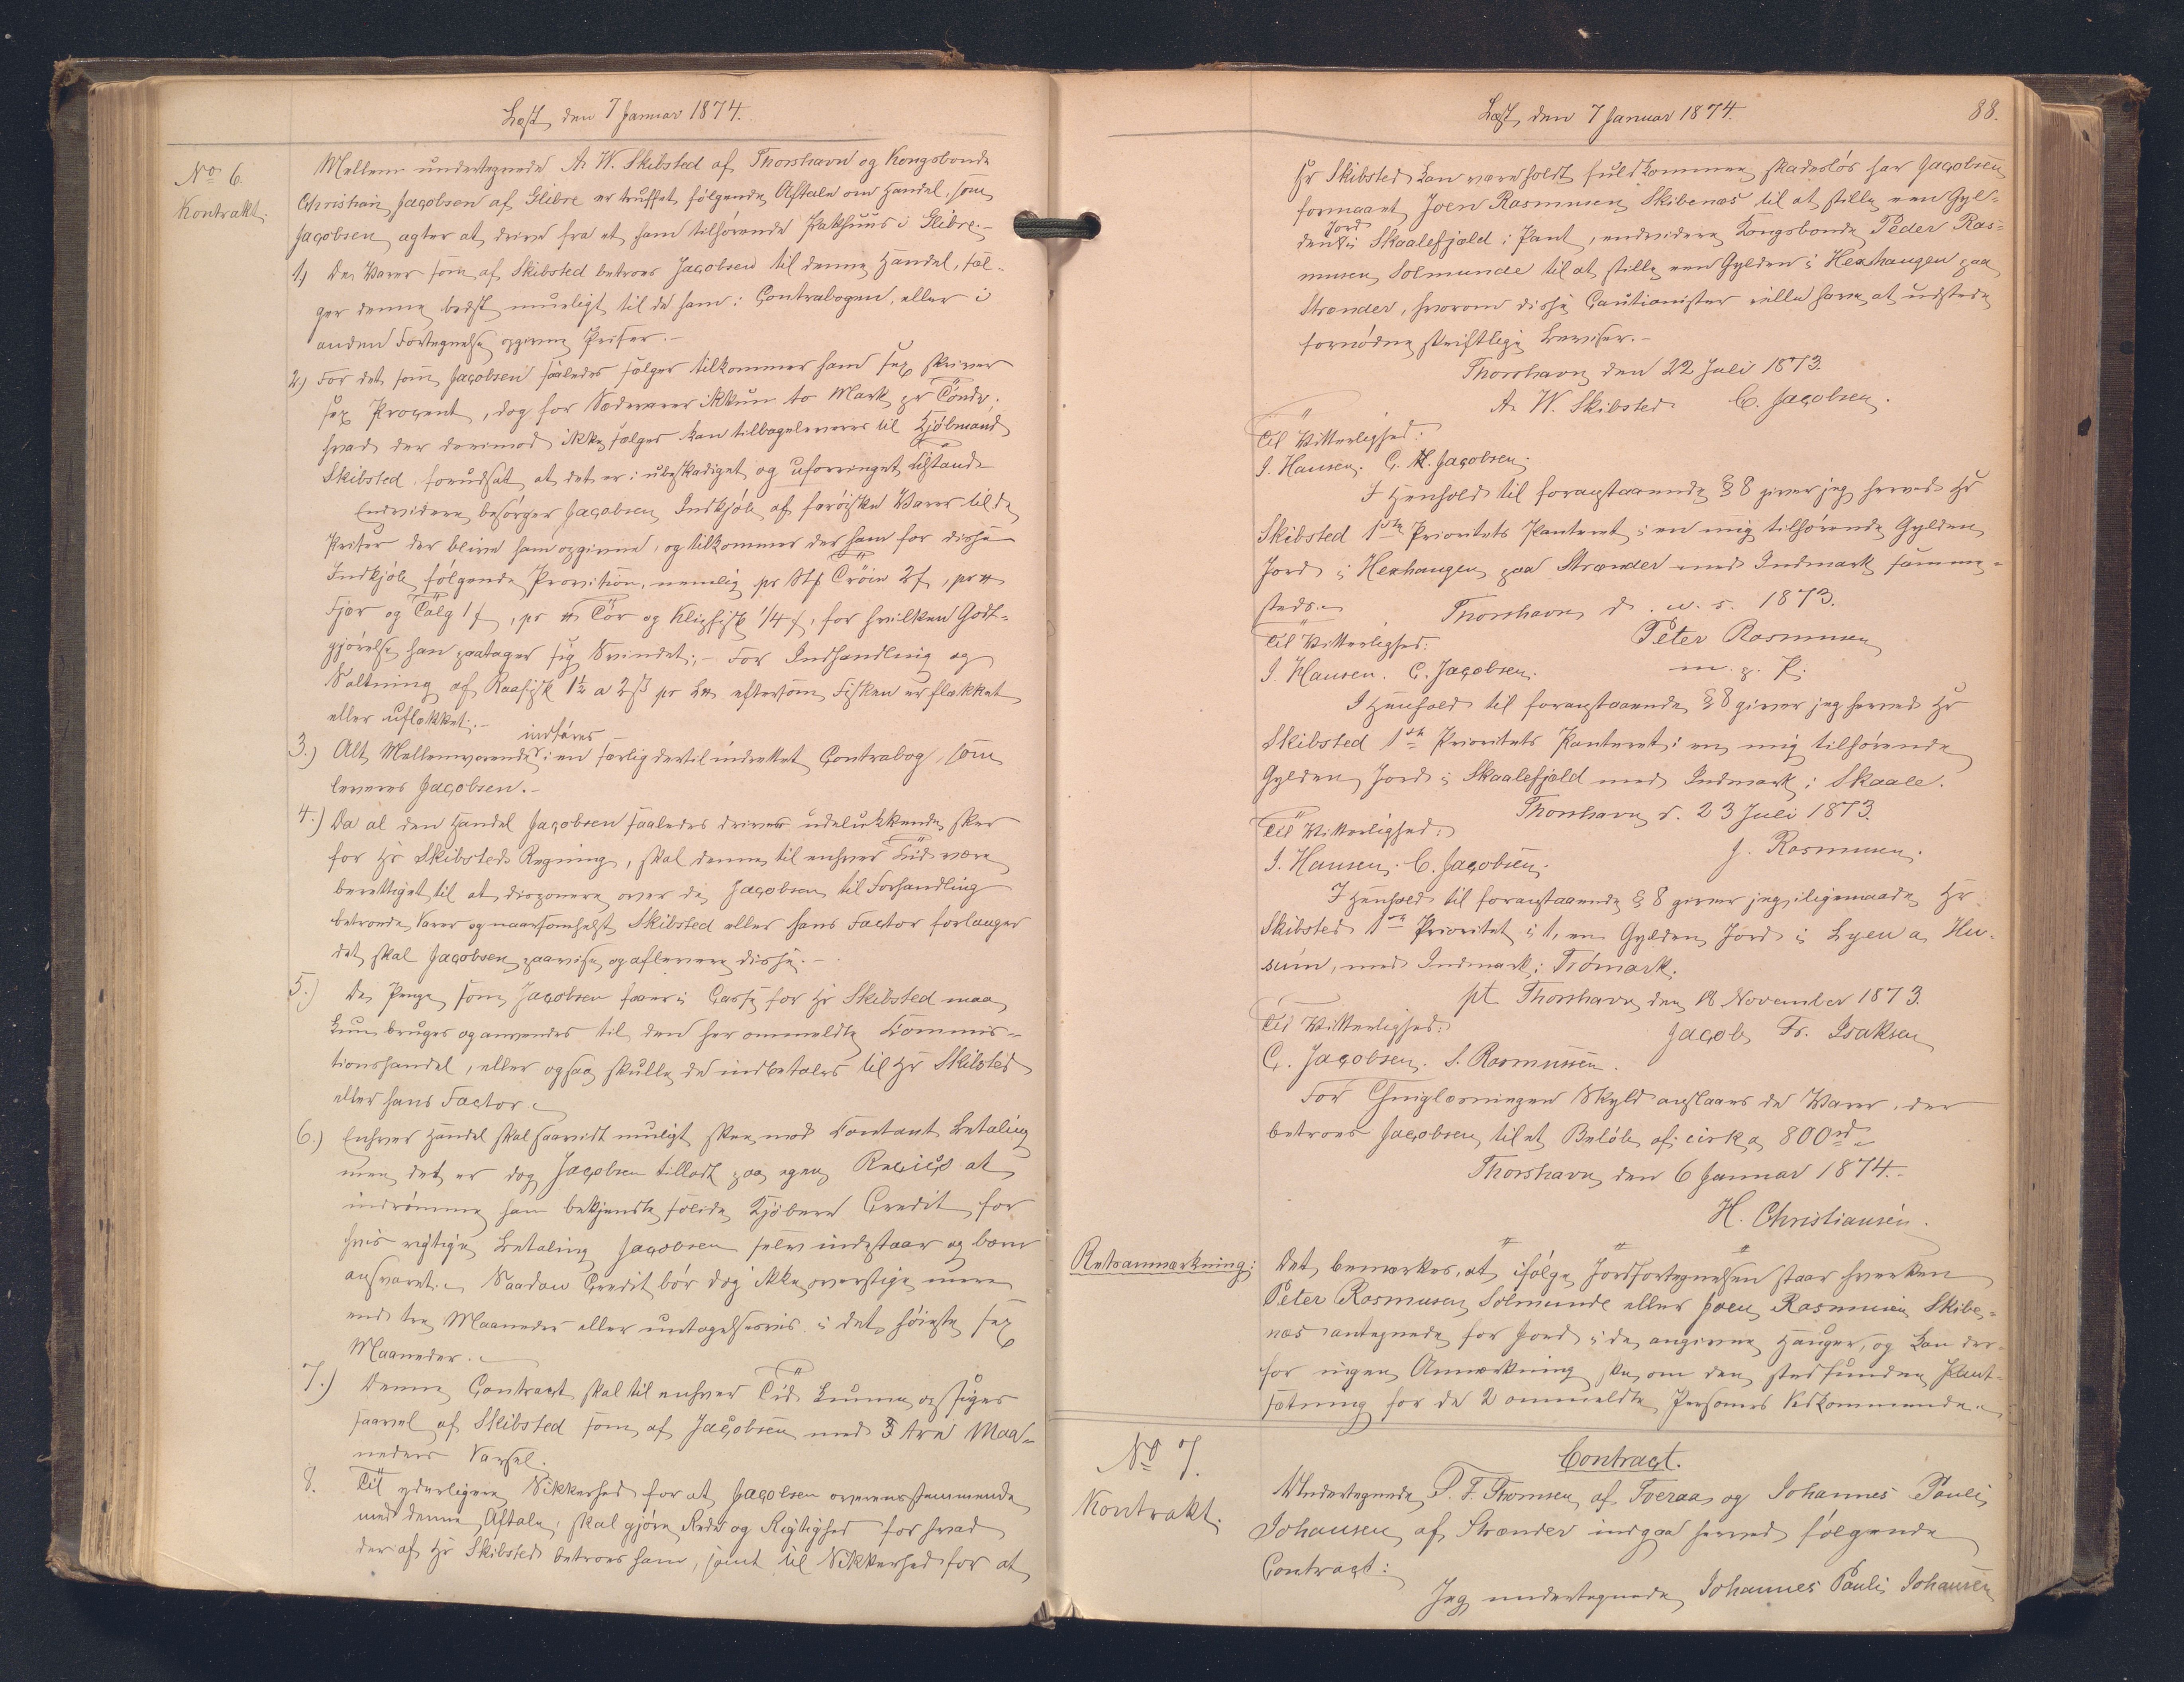 Læst, den 7 Januar 1874.
No 6.
Kontrakt.
Mellem undertegnede A. W. Skibsted af Thorshavn og Kongsbonde
Christian Jacobsen af Glibre er truffet følgende Aftale om Handel, som
Jacobsen agter at drive fra et ham tilhørende Pakhuus i Glibre.-
1) De Varer som af Skibsted betroes Jacobsen til denne Handel, sæl-
ger denne bedst mueligt til de ham i Contrabogen, eller i
anden Fortegnelse opgivne Priser.-
2) For det som Jacobsen saaledes sælger tilkommer ham sex skriver
sex Procent, dog for Sædevarer ikkun to Mark pr Tønde;
hvad der derimod ikke sælges kan tilbageleveres til Kjøbmand
Skibsted forudsat at det er i ubeskadiget og uforringet Tilstand.
Endvidere besørger Jacobsen Indkjøb af færøiske Varer til de
Priser der blive ham opgivne, og tilkommer der ham for disse
Indkjøb følgende Provision, nemlig pr Stk Trøie 2 f, pr ℔
Fjær og Talg 1 f, pr ℔ Tør og Klipfisk 1/4 f, for hvilken Godt-
gjørelse han paatager sig Svindet;- For Indhandling og
Saltning af Raafisk 1½ a 2 ß pr L℔ eftersom Fisken er flækket
eller uflækket.-
indføres
3.) Alt Mellemværende i en særlig dertil indrettet Contrabog, som
leveres Jacobsen.-
4.) Da al den Handel Jacobsen saaledes driver udelukkende sker
for Hr Skibsteds Regning, skal denne til enhver Tid være
berettiget til at disponere over de Jacobsen til Forhandling
betroede Varer og naarsomhelst Skibsted eller hans Factor forlanger
det skal Jacobsen paavise og aflevere disse.-
5.) De Penge som Jacobsen faaer i Casse for Hr Skibsted maa
kun bruges og anvendes til den her ommeldte Commis-
sionshandel, eller ogsaa skulle de indbetales til Hr Skibsted
eller hans Factor.
6.) Enhver Handel skal saavidt muligt skee mod Contant Betaling
men det er dog Jacobsen tilladt paa egen Risico at
indrømme ham bekjendte solide Kjøbere Credit for
hvis rigtige Betaling Jacobsen selv indestaar og bærer
ansvaret. Saadan Credit bør dog ikke overstige mere
end tre Maaneder eller undtagelsesvis i det høieste sex
Maaneder.
7.) Denne Contract skal til enhver Tid kunne opsiges
saavel af Skibsted som af Jacobsen med 3 tre Maa-
neders Varsel.
8. Til yderligere Sikkerhed for at Jacobsen overensstemmende
med denne Aftale, skal gjøre Rede og Rigtighed for hvad
der af Hr Skibsted betroes ham, samt til Sikkerhed for at
Læst, den 7 Januar 1874.
88.
Hr Skibsted kan være holdt fuldkommen skadesløs har Jacobsen
formaaet Joen Rasmussen Skibenæs til at stille een Gyl-
Jord
den i Skaalefjæld i Pant, endvidere Kongsbonde Peder Ras-
mussen Solmunde til at stille een Gylden i Hexhaugen paa
Strænder, hvorom disse Cautionister ville have at udstede
fornødne skriftlige Beviser.-
Thorshavn den 22 Juli 1873.
A. W. Skibsted. C. Jacobsen.
Til Vitterlighed:
I. Hansen. C. M. Jacobsen.
I Henhold til foranstaaende § 8 giver jeg herved Hr
Skibsted 1ste Prioritets Panteret i en mig tilhørende Gylden
Jord i Hexhaugen paa Strænder med Indmark samme-
steds.
Thorshavn d. u. s. 1873.
Til Vitterlighed:
Peter Rasmussen
I. Hansen. C. Jacobsen.
m. p. P.
I Henhold til foranstaaende § 8 giver jeg herved Hr
Skibsted 1ste Prioritets Panteret i en mig tilhørende
Gylden Jord i Skaalefjæld med Indmark i Skaale.
Thorshavn d. 23 Juli 1873.
Til Vitterlighed:
J. Rasmussen.
I. Hansen. C. Jacobsen.
I Henhold til foranstaaende § 8 giver jeg iligemaade Hr
Skibsted 1ste Prioritet i 1, en Gylden Jord i Lyen a Hu-
sum, med Indmark i Trømark.
pt Thorshavn den 18 November 1873.
Til Vitterlighed:
Jacob Fr. Isaksen
C. Jacobsen. S. Rasmussen.
For Thinglæsningen Skyld anslaaes de Varer, der
betroes Jacobsen til et Beløb af cirka 800 rd.
Thorshavn den 6 Januar 1874.
H. Christiansen.
Retsanmærkning:
Det bemærkes, at ifølge Jordfortegnelsen staar hverken
Peter Rasmussen Solmunde eller Joen Rasmussen Skibe-
næs antegnede for Jord i de angivne Hauger, og kan der-
for ingen Anmærkning ske om den stedfundne Pant-
sætning for de 2 ommeldte Personers Vedkommende.
No 7.
Kontrakt.
Contract.
Undertegnede P. F. Thomsen af Tveraa og Johannes Pauli
Johansen af Strænder indgaa herved følgende
Contract:
Jeg undertegnede Johannes Pauli Johansen